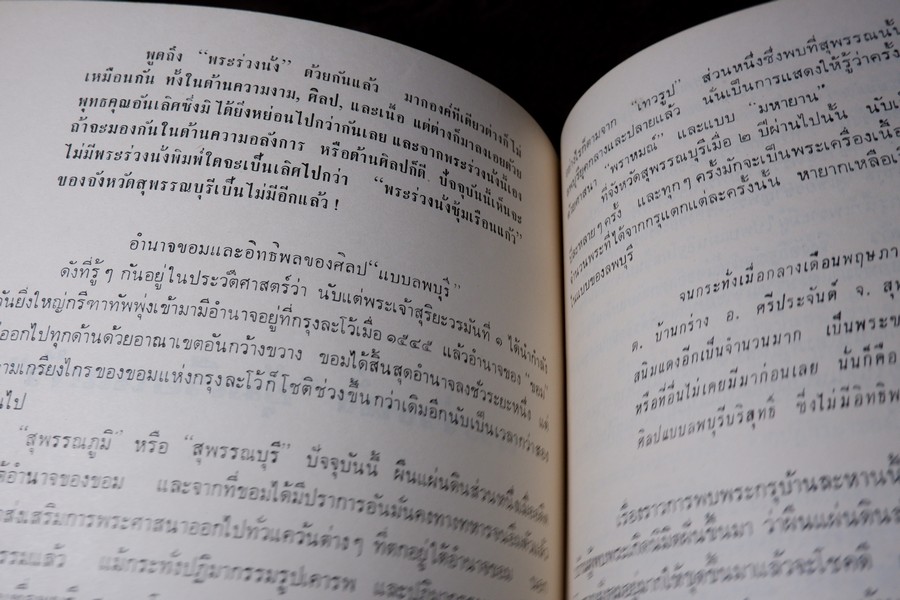 พูดถึง “พระร่วงนั่ง” ด้วยกันแล้ว มากองค์ที่เดียวต่างก็ไม่
เหมือนกัน ทั้งในด้านความงาม, ศิลป, และเนื้อ แต่ต่างก็มาลงเอยด้วย
พุทธคุณอันเลิศซึ่งมิได้ยิ่งหย่อนไปกว่ากันเลย และจากพระร่วงนั่งนี้เอง
ถ้าจะมองกันในด้านความอลังการ หรือด้านศิลปก็ดี ปัจจุบันนี้เห็นจะ
ไม่มีพระร่วงนั่งพิมพ์ใดจะเป็นเลิศไปกว่า “พระร่วงนั่งซุ้มเรือนแก้ว”
ของจังหวัดสุพรรณบุรีเป็นไม่มีอีกแล้ว !
อำนาจขอมและอิทธิพลของศิลป “แบบลพบุรี”
ดังที่รู้ๆ กันอยู่ในประวัติศาสตร์ว่า นับแต่พระเจ้าสุริยะวรมันที่ ๑ ได้นำกำลัง
อันยิ่งใหญ่กรีฑาทัพพุ่งเข้ามามีอำนาจอยู่ที่กรุงละโว้เมื่อ ๑๕๔๕ แล้วอำนาจของ “ขอม”
ออกไปทุกด้านด้วยอาณาเขตอันกว้างขวาง ขอมได้สิ้นสุดอำนาจลงชั่วระยะหนึ่ง แต่
ความเกรียงไกรของขอมแห่งกรุงละโว้ก็โชติช่วงขึ้นกว่าเดิมอีกนับเป็นเวลากว่าสอง
“สุพรรณภูมิ” หรือ “สุพรรณบุรี” ปัจจุบันนี้ ผืนแผ่นดินส่วนหนึ่งเมื่ออดีต
อำนาจของขอม และจากที่ขอมได้มีปราการอันมั่นคงทางทหารจนถึงตัวแล้ว
ส่งเสริมการพระศาสนาออกไปทั่วแคว้นต่างๆ ที่ตกอยู่ใต้อำนาจขอม
แล้ว แม้กระทั่งปฏิมากรรมรูปเคารพ
“เทวรูป” ส่วนหนึ่งซึ่งพบที่สุพรรณนั้น
และปลายแล้ว นั่นเป็นการแสดงให้รู้ว่าครั้ง
“พราหมณ์” และแบบ “มหายาน”
ที่จังหวัดสุพรรณบุรีเมื่อ ๒ ปีผ่านไปนั้น นับเป็น
หลายๆ ครั้ง และทุกๆ ครั้งมักจะเป็นพระเครื่องเนื้อ
จำนวนพระที่ได้จากกรุแตกแต่ละครั้งนั้น หายากเหลือ
ในแบบของลพบุรี
จนกระทั่งเมื่อกลางเดือนพฤษภา
ต. บ้านกร่าง อ. ศรีประจันต์ จ. สุ
สนิมแดงอีกเป็นจำนวนมาก เป็นพระข
หรือที่อื่นไม่เคยมีมาก่อนเลย นั่นก็คือ
ศิลปแบบลพบุรีบริสุทธิ์ ซึ่งไม่มีอิทธิพ
เรื่องราวการพบพระกรุบ้านละหานนั้
ผู้พบพระเกิดนิมิตฝันขึ้นมา ว่าผืนแผ่นดิน
ให้ขุดขึ้นมาแล้วจะโชคดี